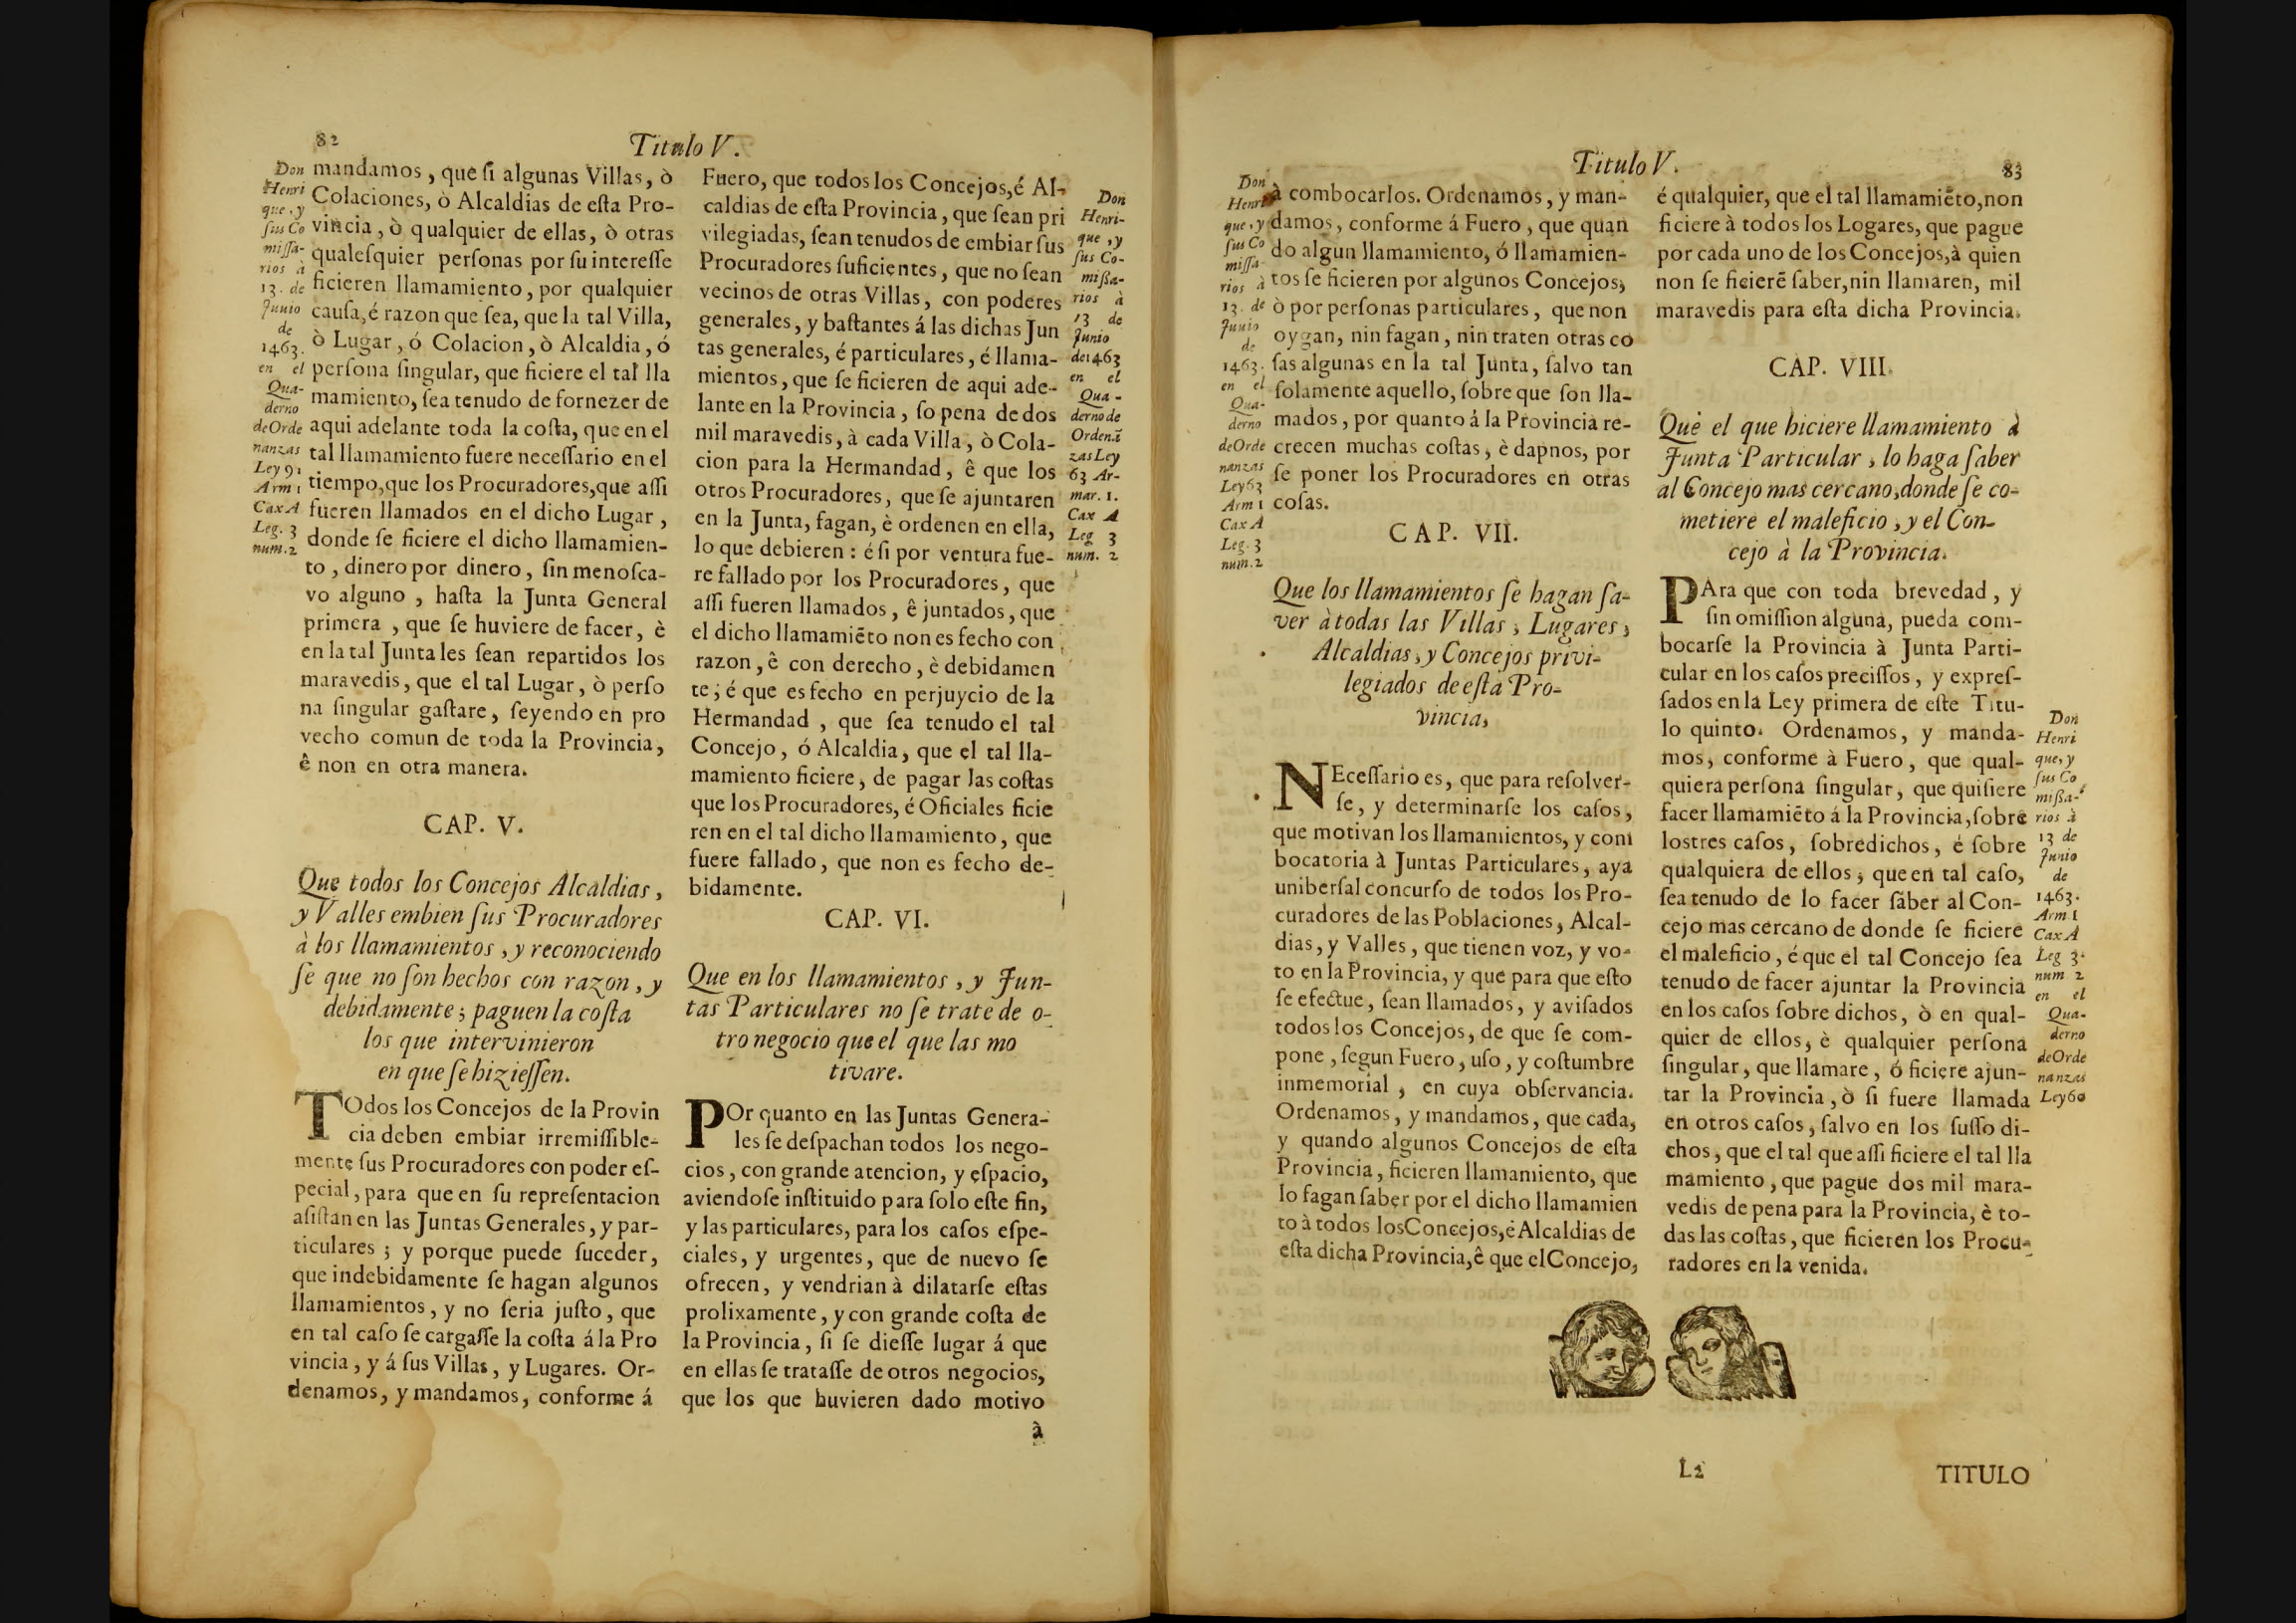 82
Titulo V.
Don
Henri
que, y
ſus Co
miſſa-
rios à
13. de
Junio
de
1463.
en el
Qua-
derno
de Orde
nanzas
Ley 91
Arm 1
Cax A
Leg. 3
num. 2
mandamos, que ſi algunas Villas, ò
Colaciones, ò Alcaldias de eſta Pro-
vincia, ò qualquier de ellas, ò otras
qualeſquier perſonas por ſu intereſſe
ficieren llamamiento, por qualquier
cauſa, é razon que ſea, que la tal Villa,
ò Lugar, ó Colacion, ò Alcaldia, ó
perſona ſingular, que ficiere el tal lla
mamiento, ſea tenudo de fornezer de
aqui adelante toda la coſta, que en el
tal llamamiento fuere neceſſario en el
tiempo, que los Procuradores, que aſſi
fueren llamados en el dicho Lugar,
donde ſe ficiere el dicho llamamien-
to, dinero por dinero, ſin menoſca-
vo alguno, haſta la Junta General
primera, que ſe huviere de facer, è
en la tal Junta les ſean repartidos los
maravedis, que el tal Lugar, ò perſo
na ſingular gaſtare, ſeyendo en pro
vecho comun de toda la Provincia,
ê non en otra manera.
CAP. V.
Que todos los Concejos Alcaldias,
y Valles embien ſus Procuradores
à los llamamientos, y reconociendo
ſe que no ſon hechos con razon, y
debidamente; paguen la coſta
los que intervinieron
en que ſe hizieſſen.
TOdos los Concejos de la Provin
cia deben embiar irremiſſible-
mente ſus Procuradores con poder eſ-
pecial, para que en ſu repreſentacion
aſiſtan en las Juntas Generales, y par-
ticulares; y porque puede ſuceder,
que indebidamente ſe hagan algunos
llamamientos, y no ſeria juſto, que
en tal caſo ſe cargaſſe la coſta á la Pro
vincia, y á ſus Villas, y Lugares. Or-
denamos, y mandamos, conforme á
Fuero, que todos los Concejos, é Al-
caldias de eſta Provincia, que ſean pri
vilegiadas, ſean tenudos de embiar ſus
Procuradores ſuficientes, que no ſean
vecinos de otras Villas, con poderes
generales, y baſtantes á las dichas Jun
tas generales, é particulares, é llama-
mientos, que ſe ficieren de aqui ade-
lante en la Provincia, ſo pena de dos
mil maravedis, à cada Villa, ò Cola-
cion para la Hermandad, ê que los
otros Procuradores, que ſe ajuntaren
en la Junta, fagan, è ordenen en ella,
lo que debieren: é ſi por ventura fue-
re fallado por los Procuradores, que
aſſi fueren llamados, ê juntados, que
el dicho llamamiēto non es fecho con
razon, ê con derecho, è debidamen
te; é que es fecho en perjuycio de la
Hermandad, que ſea tenudo el tal
Concejo, ó Alcaldia, que el tal lla-
mamiento ficiere, de pagar las coſtas
que los Procuradores, é Oficiales ficie
ren en el tal dicho llamamiento, que
fuere fallado, que non es fecho de-
bidamente.
Don
Henri-
que, y
ſus Co-
mißa-
rios à
13 de
Junio
de 1463
en el
Qua-
derno de
Ordenā
zas Ley
63 Ar-
mar. 1.
Cax A
Leg 3
num. 2
CAP. VI.
Que en los llamamientos, y Jun-
tas Particulares no ſe trate de o-
tro negocio que el que las mo
tivare.
POr quanto en las Juntas Genera-
les ſe deſpachan todos los nego-
cios, con grande atencion, y eſpacio,
aviendoſe inſtituido para ſolo eſte fin,
y las particulares, para los caſos eſpe-
ciales, y urgentes, que de nuevo ſe
ofrecen, y vendrian à dilatarſe eſtas
prolixamente, y con grande coſta de
la Provincia, ſi ſe dieſſe lugar á que
en ellas ſe trataſſe de otros negocios,
que los que huvieren dado motivo
à
Titulo V.
83
Don
Henri
que, y
ſus Co
miſſa-
rios à
13. de
Junio
de
1463.
en el
Qua-
derno
de Orde
nanzas
Ley 63
Arm 1
Cax A
Leg. 3
num. 2
à combocarlos. Ordenamos, y man-
damos, conforme á Fuero, que quan
do algun llamamiento, ó llamamien-
tos ſe ficieren por algunos Concejos,
ò por perſonas particulares, que non
oygan, nin fagan, nin traten otras co
ſas algunas en la tal Junta, ſalvo tan
ſolamente aquello, ſobre que ſon lla-
mados, por quanto á la Provincia re-
crecen muchas coſtas, è dapnos, por
ſe poner los Procuradores en otras
coſas.
CAP. VII.
Que los llamamientos ſe hagan ſa-
ver à todas las Villas, Lugares,
Alcaldias, y Concejos privi-
legiados de eſta Pro-
vincia,
NEceſſario es, que para reſolver-
ſe, y determinarſe los caſos,
que motivan los llamamientos, y com
bocatoria à Juntas Particulares, aya
uniberſal concurſo de todos los Pro-
curadores de las Poblaciones, Alcal-
dias, y Valles, que tienen voz, y vo-
to en la Provincia, y que para que eſto
ſe efectue, ſean llamados, y aviſados
todos los Concejos, de que ſe com-
pone, ſegun Fuero, uſo, y coſtumbre
inmemorial, en cuya obſervancia.
Ordenamos, y mandamos, que cada,
y quando algunos Concejos de eſta
Provincia, ficieren llamamiento, que
lo fagan ſaber por el dicho llamamien
to à todos los Concejos, é Alcaldias de
eſta dicha Provincia, ê que el Concejo,
é qualquier, que el tal llamamiēto, non
ficiere à todos los Logares, que pague
por cada uno de los Concejos, à quien
non ſe ficierē ſaber, nin llamaren, mil
maravedis para eſta dicha Provincia.
CAP. VIII.
Que el que hiciere llamamiento à
Junta Particular, lo haga ſaber
al Concejo mas cercano, donde ſe co-
metiere el maleficio, y el Con-
cejo à la Provincia.
PAra que con toda brevedad, y
ſin omiſſion alguna, pueda com-
bocarſe la Provincia à Junta Parti-
cular en los caſos preciſſos, y expreſ-
ſados en la Ley primera de eſte Titu-
lo quinto. Ordenamos, y manda-
mos, conforme à Fuero, que qual-
quiera perſona ſingular, que quiſiere
facer llamamiēto á la Provincia, ſobre
los tres caſos, ſobredichos, é ſobre
qualquiera de ellos, que en tal caſo,
ſea tenudo de lo facer ſaber al Con-
cejo mas cercano de donde ſe ficiere
el maleficio, é que el tal Concejo ſea
tenudo de facer ajuntar la Provincia
en los caſos ſobre dichos, ò en qual-
quier de ellos, è qualquier perſona
ſingular, que llamare, ó ficiere ajun-
tar la Provincia, ò ſi fuere llamada
en otros caſos, ſalvo en los ſuſſo di-
chos, que el tal que aſſi ficiere el tal lla
mamiento, que pague dos mil mara-
vedis de pena para la Provincia, è to-
das las coſtas, que ficieren los Procu-
radores en la venida.
Don
Henri
que, y
ſus Co
mißa-
rios à
13 de
Junio
de
1463.
Arm 1
Cax A
Leg 3.
num 2
en el
Qua-
derno
de Orde
nanzas
Ley 60
L2
TITULO